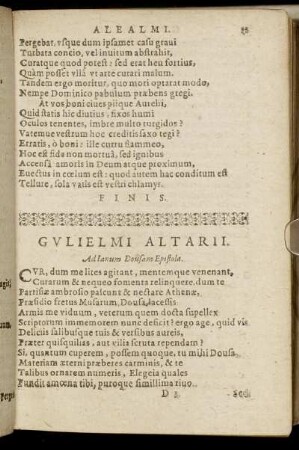 ALEALMI. 55
Pergebat, vsque dum ipsamet casu graui
Turbata concio, vel inuitum abstrahit,
Curatque quod potest: sed erat heu fortius,
Quàm posset vllâ vt arte curari malum.
Tandem ergo moritur, quo mori optarat modo,
Nempe Dominico pabulum præbens gregi.
At vos boni ciues piique Aurelî,
Quid statis hîc diutius, fixos humi
Oculos tenentes, imbre multo turgidos?
Vatemue vestrum hoc creditis saxo tegi?
Erratis, ô boni: ille curru flammeo,
Hoc est fide non mortuâ, sed ignibus
Accensâ amoris in Deum atque proximum,
Euectus in cœlum est: quod autem hac conditum est
Tellure, sola vatis est vestri chlamys.
FINIS.
GVLIELMI ALTARII.
Ad Ianum Dousam Epistola.
CVR, dum me lites agitant, mentemque venenant,
Curarum & nequeo fomenta relinquere, dum te
Partisiæ ambrosio pascunt & nectare Athenæ,
Præsidio fretus Musarum, Dousa, lacessis
Armis me viduum, veterum quem docta supellex
Scriptorum immemorem nunc deficit? ergo age, quid vis
Deliciis talibusque tuis & versibus aureis,
Præter quisquilias, aut vilia scruta rependam?
Si, quantum cuperem, possem quoque, tu mihi Dousa
Materiam æterni præberes carminis, & te
Talibus ornarem numeris, Elegeia quales
Fundit amœna tibi, puroque simillima riuo.
D 3